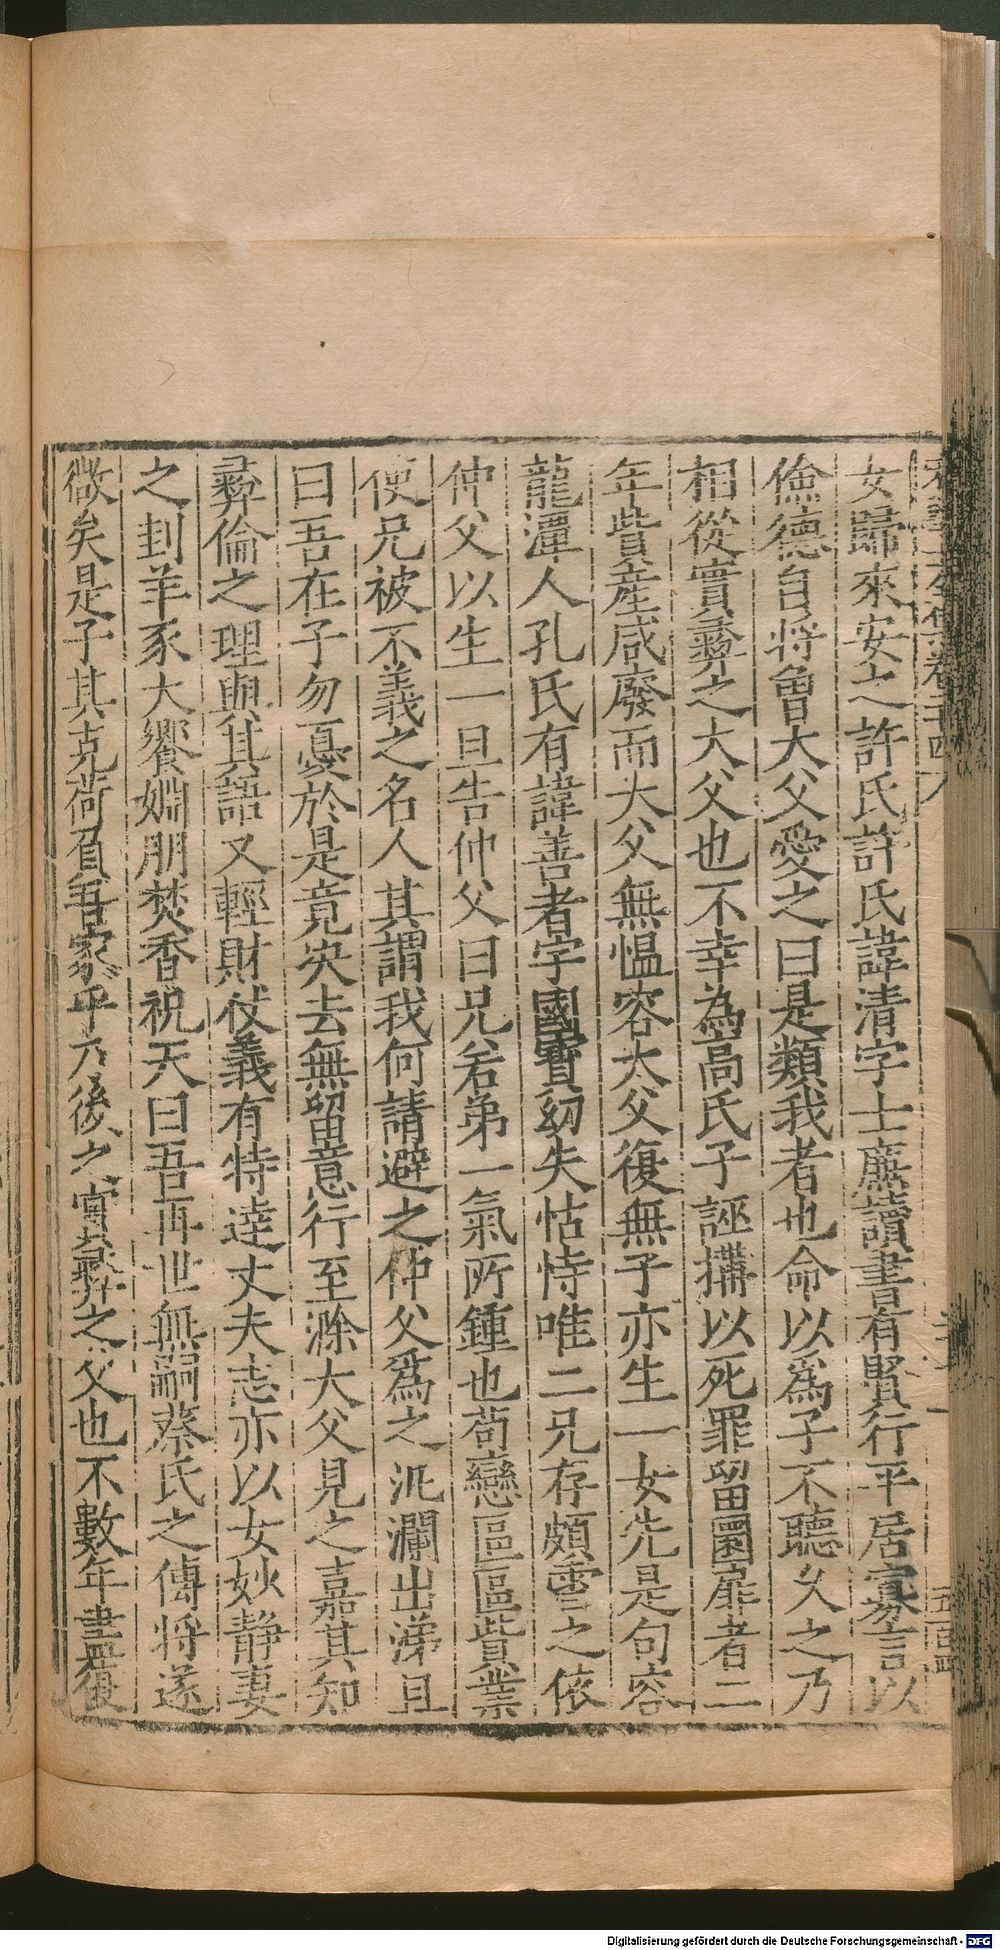 女歸來安之許氏許氏諱清字士廉讀書有賢行平居寡言以
儉德自將曾大父愛之曰是類我者也命以爲子不聽久之乃
相從實彞之大父也不幸為高氏子誣搆以死罪留圜扉者二
年貲産咸廢而大父無慍容大父復無子亦生一女先是句容
龍潭人孔氏有諱善者字國寶幼失怙恃唯二兄存頗䨇之依
仲父以生一旦告仲父曰兄若弟一氣所鍾也苟戀區區貲業
使兄被不義之名人其謂我何請避之仲父爲之汍瀾出涕且
曰吾在子勿憂於是竟决去無留意行至滁大父見之嘉其知
彞倫之理與其語又輕財仗義有特達丈夫志亦以女妙静妻
之刲羊豕大饗婣朋焚香祝天曰吾再世無嗣蔡氏之傳將遂
微矣是子其克荷負吾家乎乃後之實彞之父也不數年盡復